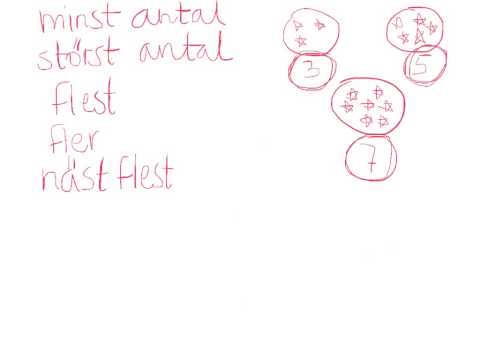 minst antal
störst antal
flest
fler
näst flest
3
5
7